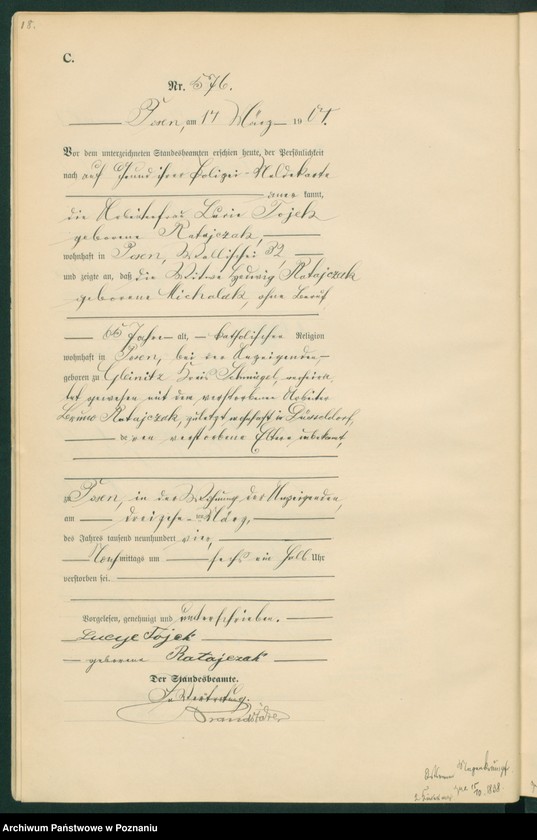 18.
C.
Nr. 576.
Posen, am 17 März 1904.
Vor dem unterzeichneten Standesbeamten erschien heute, der Persönlichkeit
nach auf Grund ihrer Polizei-Meldekarte
anerkannt,
die Arbeiterfrau Lucie Tojek
geborene Ratajczak,
wohnhaft in Posen, Wallischei 52
und zeigte an, daß die Witwe Hedwig Ratajczak
geborene Michalak, ohne Beruf
Jahre alt, katholischer Religion
wohnhaft in Posen, bei der Anzeigenden,
geboren zu Gleinitz Kreis Schmiegel, verheira
tet gewesen mit dem verstorbenen Arbeiter
Ratajczak, zuletzt wohnhaft in Düsseldorf,
deren verstorbene Eltern unbekannt,
zu Posen, in der Wohnung der Anzeigenden,
am dreizehn März
des Jahres tausend neunhundert vier,
Nachmittags um sechs ein halb Uhr
verstorben sei.
Vorgelesen, genehmigt und unterschrieben.
Lucye Tojek
geborene Ratajczak
Der Standesbeamte.
In Vertretung.
Archiwum Państwowe w Poznaniu